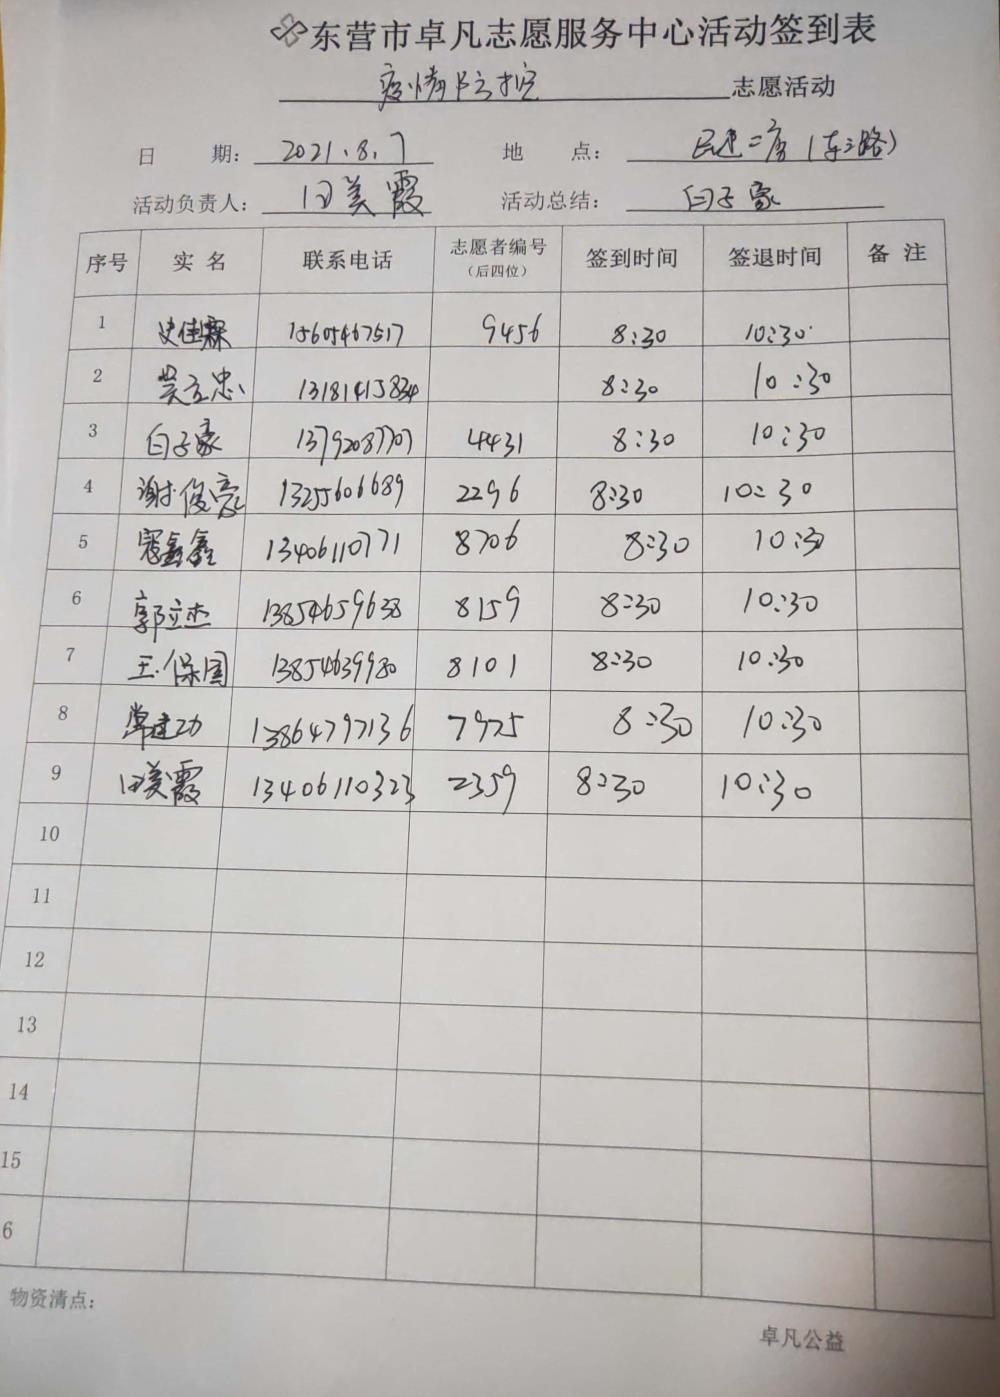 东营市卓凡志愿服务中心活动签到表
疫情防控 志愿活动
日 期: 2021.8.7 地 点: 民建二房(东三路)
活动负责人: 田美霞 活动总结: 白子豪
序号 实 名 联系电话 志愿者编号 (后四位) 签到时间 签退时间 备 注
1 史佳霖 15605467517 9456 8:30 10:30
2 立忠 13181415834 8:30 10:30
3 白子豪 13792087707 4431 8:30 10:30
4 谢俊豪 13255606689 2296 8:30 10:30
5 寇鑫鑫 13406110771 8706 8:30 10:30
6 郭立杰 13854659638 8159 8:30 10:30
7 王保国 13854639980 8101 8:30 10:30
8 常建功 13864797136 7975 8:30 10:30
9 田美霞 13406110323 2359 8:30 10:30
10
11
12
13
14
15
6
物资清点:
卓凡公益